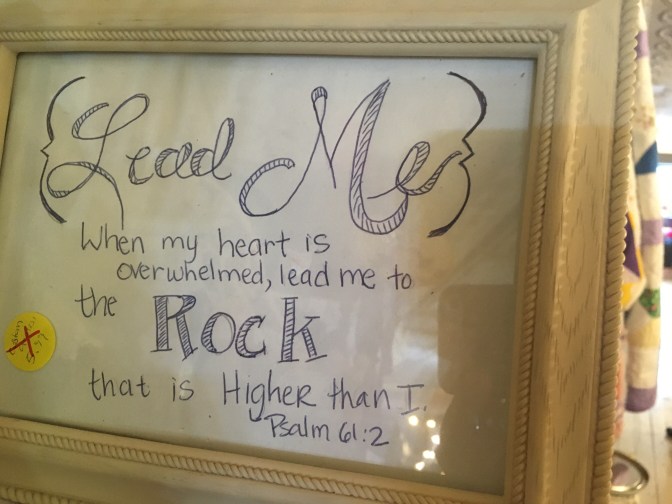 {Lead Me}
When my heart is
overwhelmed, lead me to
the Rock
that is Higher than I.
Psalm 61:2